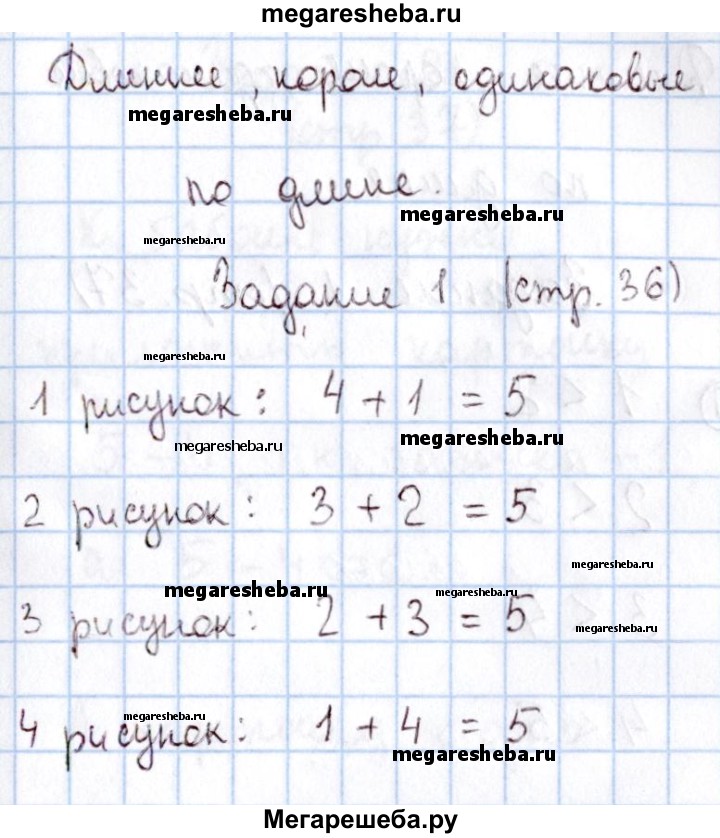 megaresheba.ru
Длиннее, короче, одинаковые
megaresheba.ru
по длине.
megaresheba.ru
megaresheba.ru
Задание 1 (стр. 36)
megaresheba.ru
1 рисунок: 4 + 1 = 5
megaresheba.ru
megaresheba.ru
2 рисунок: 3 + 2 = 5
megaresheba.ru
megaresheba.ru
megaresheba.ru
3 рисунок: 2 + 3 = 5
megaresheba.ru
megaresheba.ru
4 рисунок: 1 + 4 = 5
megaresheba.ru
Мегарешеба.ру